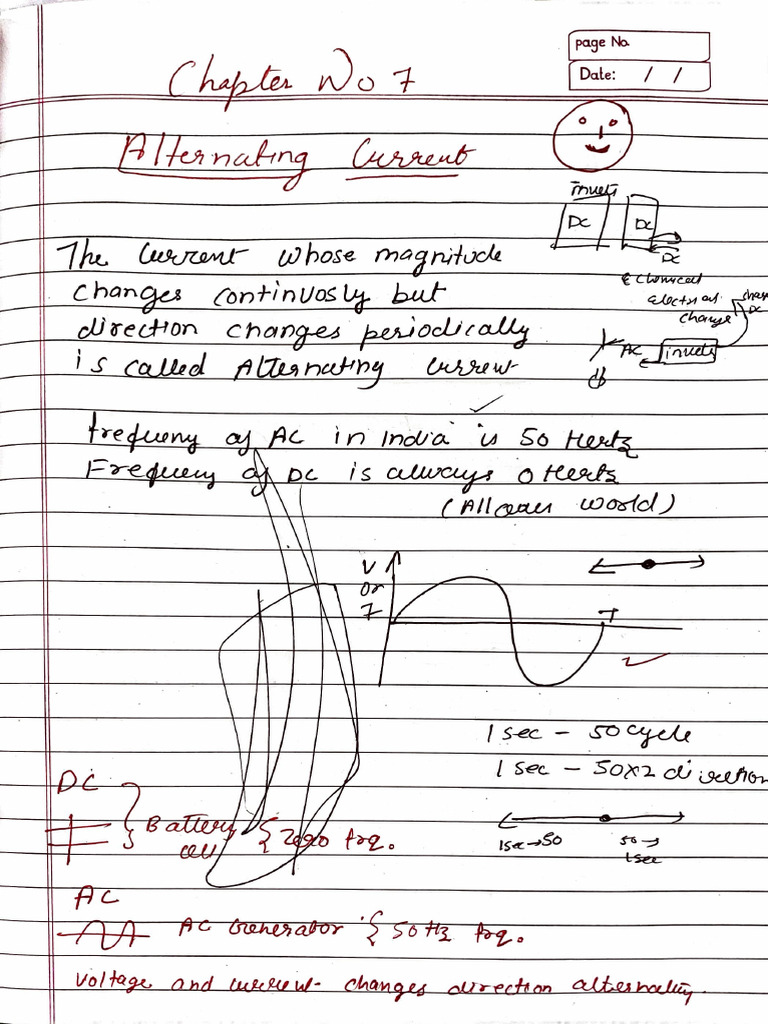 page No.
Date: / /
Chapter No 7
Alternating Current
DC DC
DC
The Current whose magnitude
changes continuosly but
direction changes periodically
is called Alternating Current
Chemical
Electrical
change
AC
frequeny of AC in India is 50 Hertz
Frequeny of DC is always 0 Hertz
(All over world)
V
or
I
T
1 sec - 50 cycle
1 sec - 50x2 direction
DC
Battery
cell
{ Zero frq.
1sec→50
50→
1sec
AC
AC Generator { 50 Hz frq.
Voltage and current changes direction alternality.